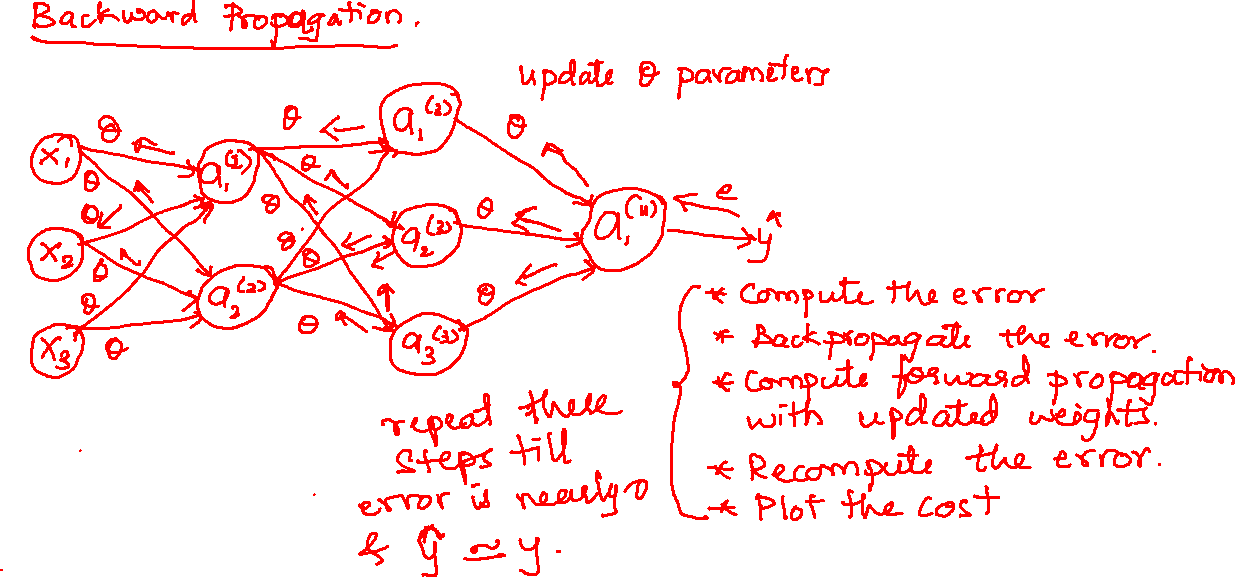 Backward Propagation.
update θ parameters
θ θ θ
x₁ a₁⁽²⁾ a₁⁽³⁾
θ θ
θ θ e
x₂ θ a₂⁽³⁾ θ a₁⁽⁴⁾ ŷ
θ θ
θ a₂⁽²⁾ θ θ
x₃ θ a₃⁽³⁾
* Compute the error
* Backpropagate the error.
* Compute forward propagation
with updated weights.
* Recompute the error.
* Plot the cost
repeat these
steps till
error is nearly 0
& ŷ ≃ y.